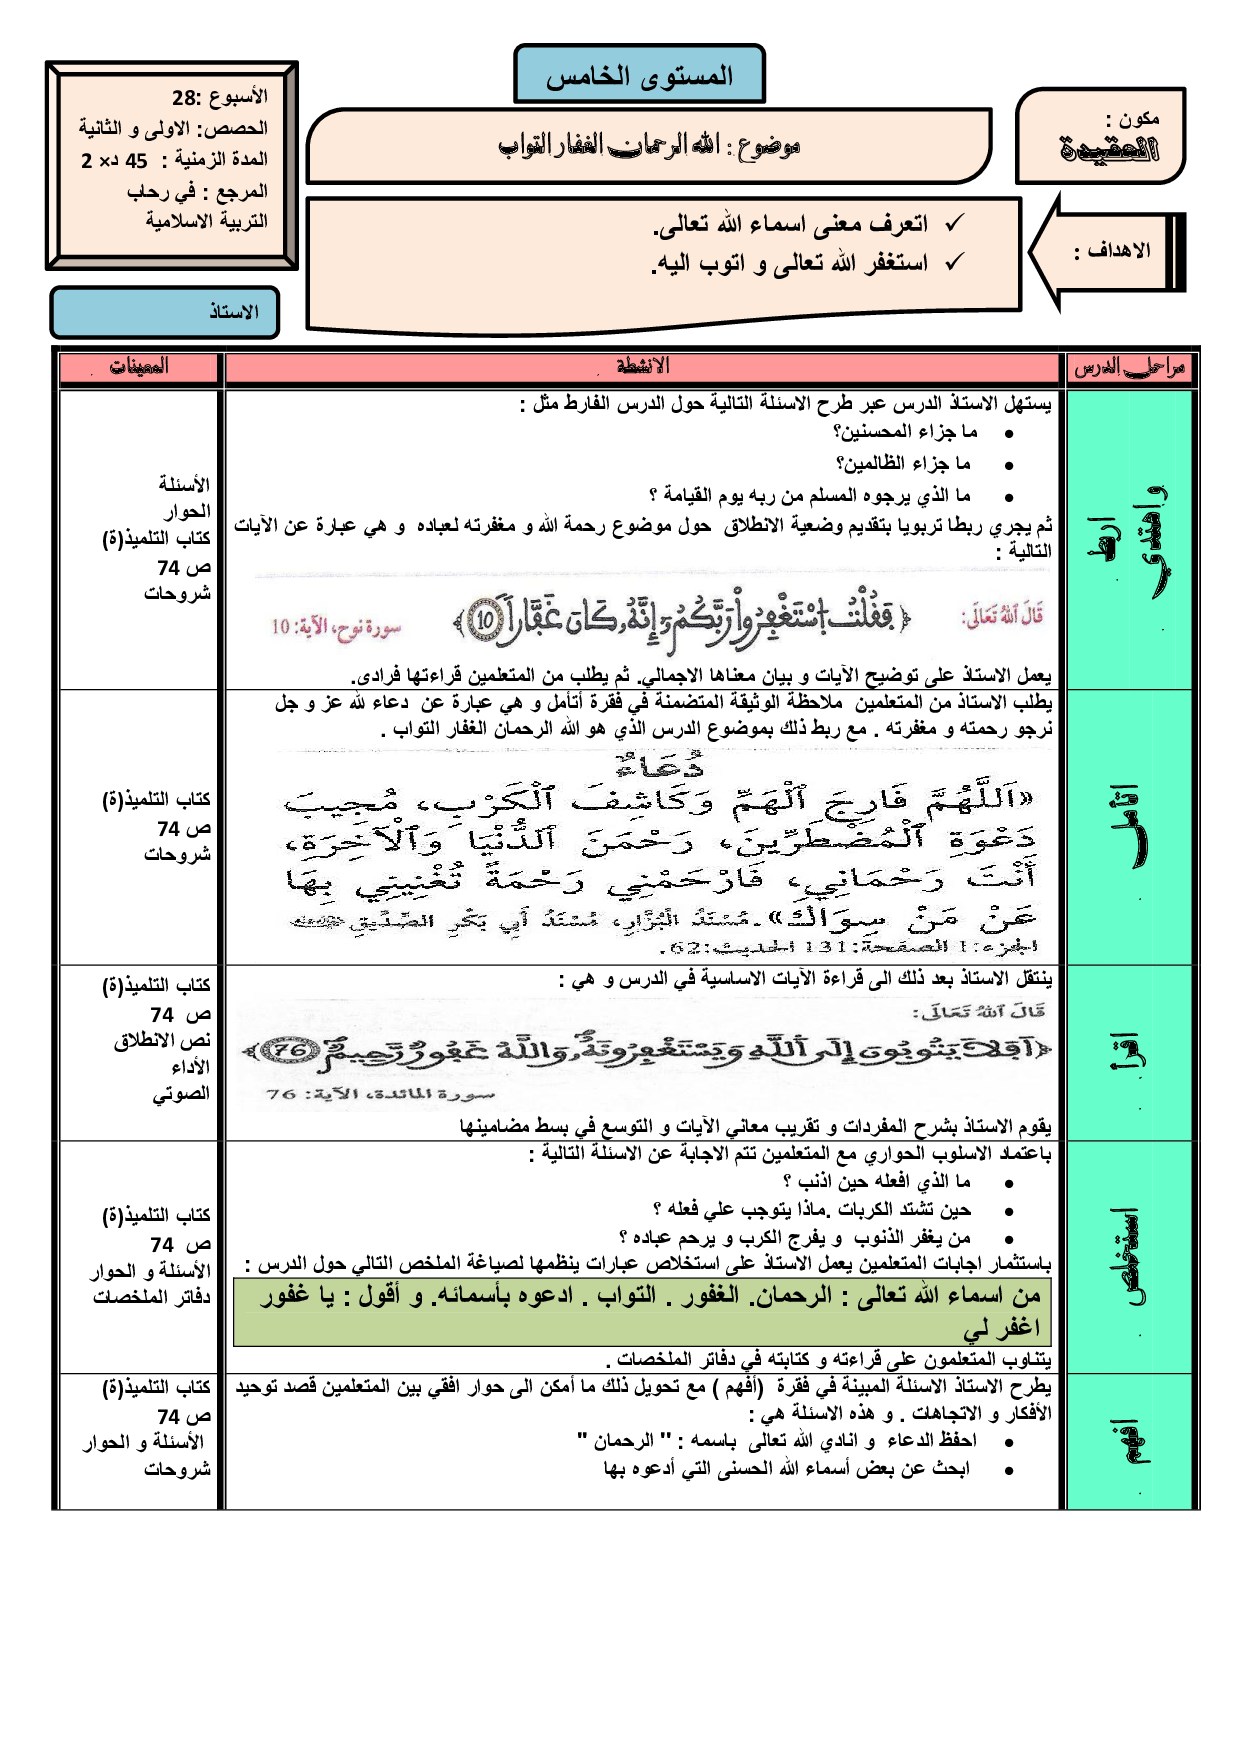 المستوى الخامس
مكون :
العقيدة
موضوع : الله الرحمان الغفار التواب
الأسبوع :28
الحصص: الاولى و الثانية
المدة الزمنية : 45 د× 2
المرجع : في رحاب
التربية الاسلامية
الاهداف :
✓ اتعرف معنى اسماء الله تعالى.
✓ استغفر الله تعالى و اتوب اليه.
الاستاذ
مراحل الدرس
الانشطة
المعينات
اربط
و اهتدي
يستهل الاستاذ الدرس عبر طرح الاسئلة التالية حول الدرس الفارط مثل :
• ما جزاء المحسنين؟
• ما جزاء الظالمين؟
• ما الذي يرجوه المسلم من ربه يوم القيامة ؟
ثم يجري ربطا تربويا بتقديم وضعية الانطلاق حول موضوع رحمة الله و مغفرته لعباده و هي عبارة عن الآيات
التالية :
قَالَ اَللَّهُ تَعَالَى: ﴿فَقُلْتُ اُ۪سْتَغْفِرُواْ رَبَّكُمُۥٓ إِنَّهُۥ كَانَ غَفَّاراٗ 10﴾ سورة نوح، الآية: 10
يعمل الاستاذ على توضيح الآيات و بيان معناها الاجمالي. ثم يطلب من المتعلمين قراءتها فرادى.
الأسئلة
الحوار
كتاب التلميذ(ة)
ص 74
شروحات
اتأمل
يطلب الاستاذ من المتعلمين ملاحظة الوثيقة المتضمنة في فقرة أتأمل و هي عبارة عن دعاء لله عز و جل
نرجو رحمته و مغفرته . مع ربط ذلك بموضوع الدرس الذي هو الله الرحمان الغفار التواب .
دُعَاءٌ
«اَللَّهُمَّ فَارِجَ اَلْهَمِّ وَكَاشِفَ اَلْكَرْبِ، مُجِيبَ
دَعْوَةِ اَلْمُضْطَرِّينَ، رَحْمَنَ اَلدُّنْيَا وَاَلْآخِرَةِ،
أَنْتَ رَحْمَانِي، فَارْحَمْنِي رَحْمَةً تُغْنِينِي بِهَا
عَنْ مَنْ سِوَاكَ». مُسْنَدُ الْبُزَّارِ، مُسْنَدُ أَبِي بَكْرٍ الصِّدِّيقِ
الجزء:1 الصفحة:131 الحديث:62.
كتاب التلميذ(ة)
ص 74
شروحات
اقرأ
ينتقل الاستاذ بعد ذلك الى قراءة الآيات الاساسية في الدرس و هي :
قَالَ اَللَّهُ تَعَالَى:
﴿أَفَلَا يَتُوبُونَ إِلَى اَللَّهِ وَيَسْتَغْفِرُونَهُۥ وَاللَّهُ غَفُورٌ رَّحِيمٌ 76﴾
سورة المائدة، الآية: 76
يقوم الاستاذ بشرح المفردات و تقريب معاني الآيات و التوسع في بسط مضامينها
كتاب التلميذ(ة)
ص 74
نص الانطلاق
الأداء
الصوتي
استخلص
باعتماد الاسلوب الحواري مع المتعلمين تتم الاجابة عن الاسئلة التالية :
• ما الذي افعله حين اذنب ؟
• حين تشتد الكربات .ماذا يتوجب علي فعله ؟
• من يغفر الذنوب و يفرج الكرب و يرحم عباده ؟
باستثمار اجابات المتعلمين يعمل الاستاذ على استخلاص عبارات ينظمها لصياغة الملخص التالي حول الدرس :
من اسماء الله تعالى : الرحمان. الغفور . التواب . ادعوه بأسمائه. و أقول : يا غفور
اغفر لي
يتناوب المتعلمون على قراءته و كتابته في دفاتر الملخصات .
كتاب التلميذ(ة)
ص 74
الأسئلة و الحوار
دفاتر الملخصات
افهم
يطرح الاستاذ الاسئلة المبينة في فقرة (أفهم ) مع تحويل ذلك ما أمكن الى حوار افقي بين المتعلمين قصد توحيد
الأفكار و الاتجاهات . و هذه الاسئلة هي :
• احفظ الدعاء و انادي الله تعالى باسمه : '' الرحمان "
• ابحث عن بعض أسماء الله الحسنى التي أدعوه بها
كتاب التلميذ(ة)
ص 74
الأسئلة و الحوار
شروحات